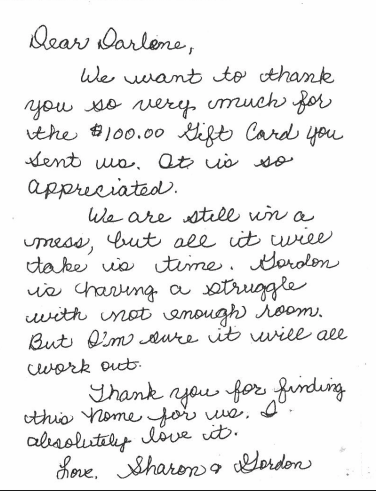 Dear Darlene,
We want to thank
you so very much for
the $100.00 Gift Card you
sent us. It is so
appreciated.
We are still in a
mess, but all it will
take is time. Gordon
is having a struggle
with not enough room.
But I'm sure it will all
work out.
Thank you for finding
this home for us. I
absolutely love it.
Love, Sharon & Gordon